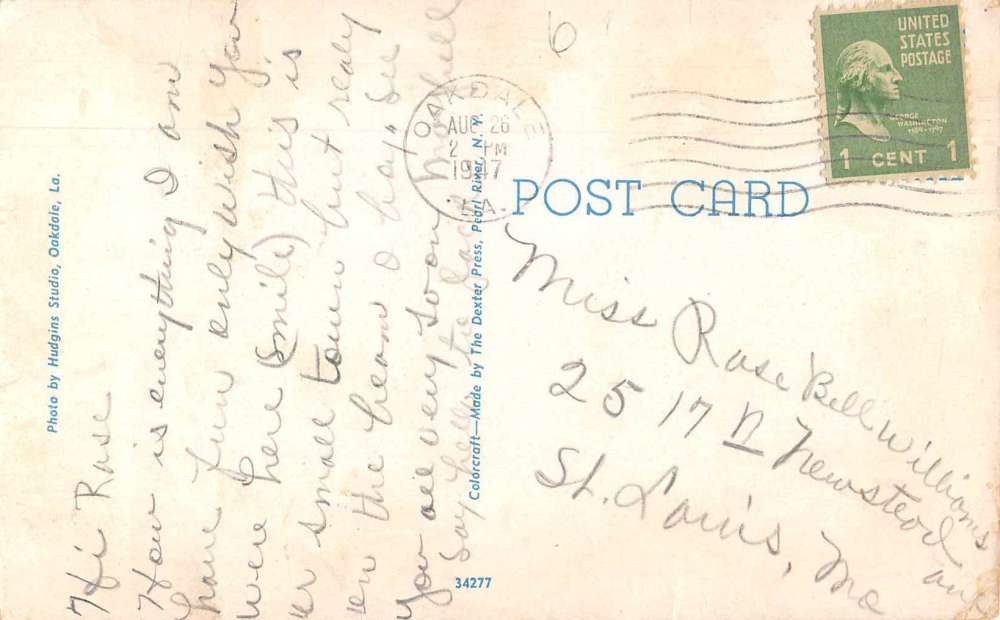 Hi Rose
How is everything I am
have fun only wish you
were here (smile) this is
er small town but realy
en the beam o boy" see
you all very soon
Say hello to
Photo by Hudgins Studio, Oakdale, La.
Colorcraft—Made by The Dexter Press, Pearl River, N. Y.
34277
POST CARD
OAKDALE
AUG 26
2 PM
1947
LA.
UNITED
STATES
POSTAGE
GEORGE
WASHINGTON
1 CENT 1
Miss Rose Bell Williams
2517 N Newstead ave
St. Louis, Mo
6